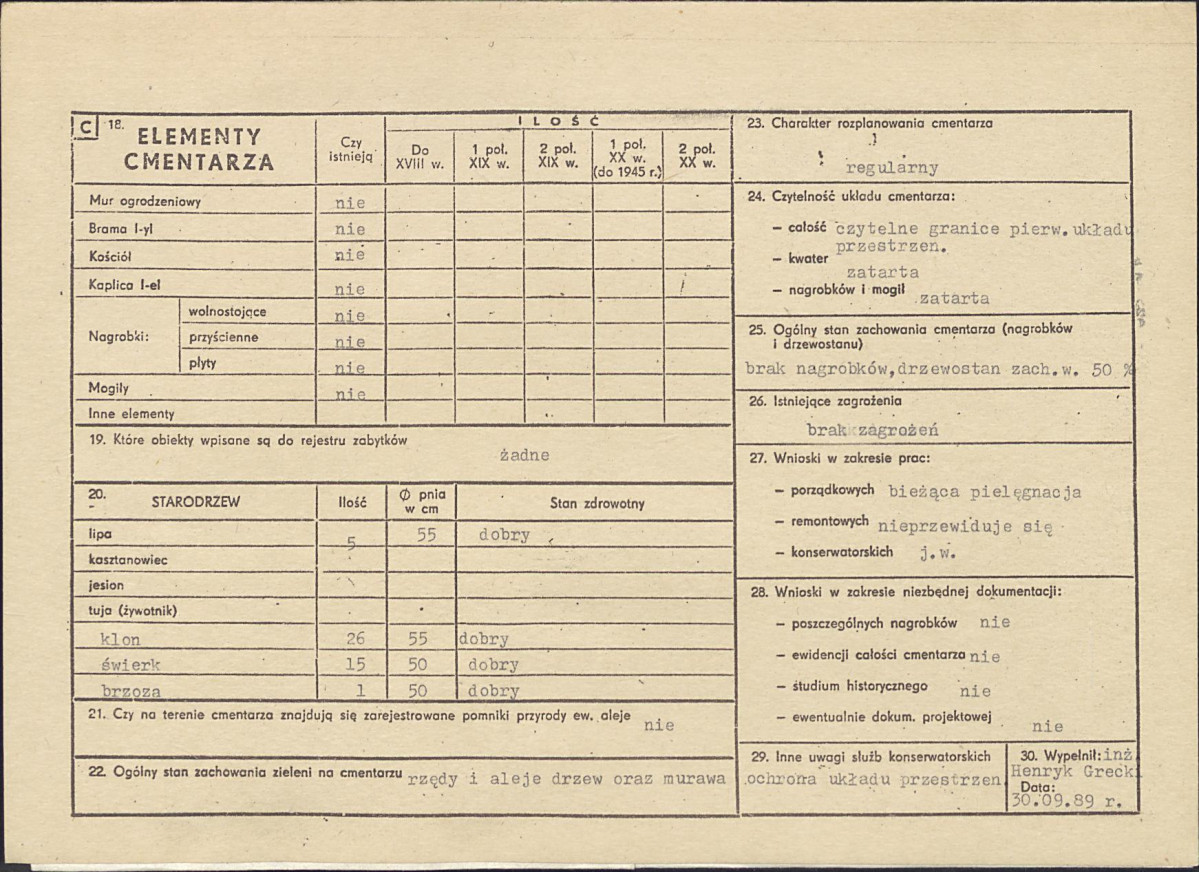 C 18. ELEMENTY CMENTARZA
Czy istnieją
ILOŚĆ
Do XVIII w.
1 poł. XIX w.
2 poł. XIX w.
1 poł. XX w. (do 1945 r.)
2 poł. XX w.
Mur ogrodzeniowy nie
Brama I-yI nie
Kościół nie
Kaplica I-eI nie
Nagrobki:
wolnostojące nie
przyścienne nie
płyty nie
Mogiły nie
Inne elementy
19. Które obiekty wpisane są do rejestru zabytków
żadne
20. STARODRZEW Ilość Ø pnia w cm Stan zdrowotny
lipa 5 55 dobry
kasztanowiec
jesion
tuja (żywotnik)
klon 26 55 dobry
świerk 15 50 dobry
brzoza 1 50 dobry
21. Czy na terenie cmentarza znajdują się zarejestrowane pomniki przyrody ew. aleje
nie
22. Ogólny stan zachowania zieleni na cmentarzu rzędy i aleje drzew oraz murawa
23. Charakter rozplanowania cmentarza
regularny
24. Czytelność układu cmentarza:
– całość czytelne granice pierw.układu
przestrzen.
– kwater
zatarta
– nagrobków i mogił
zatarta
25. Ogólny stan zachowania cmentarza (nagrobków
i drzewostanu)
brak nagrobków,drzewostan zach.w. 50 %
26. Istniejące zagrożenia
brak zagrożeń
27. Wnioski w zakresie prac:
– porządkowych bieżąca pielęgnacja
– remontowych nieprzewiduje się
– konserwatorskich j.w.
28. Wnioski w zakresie niezbędnej dokumentacji:
– poszczególnych nagrobków nie
– ewidencji całości cmentarza nie
– studium historycznego nie
– ewentualnie dokum. projektowej nie
29. Inne uwagi służb konserwatorskich
ochrona układu przestrzen.
30. Wypełnił: inż
Henryk Grecki
Data:
30.09.89 r.